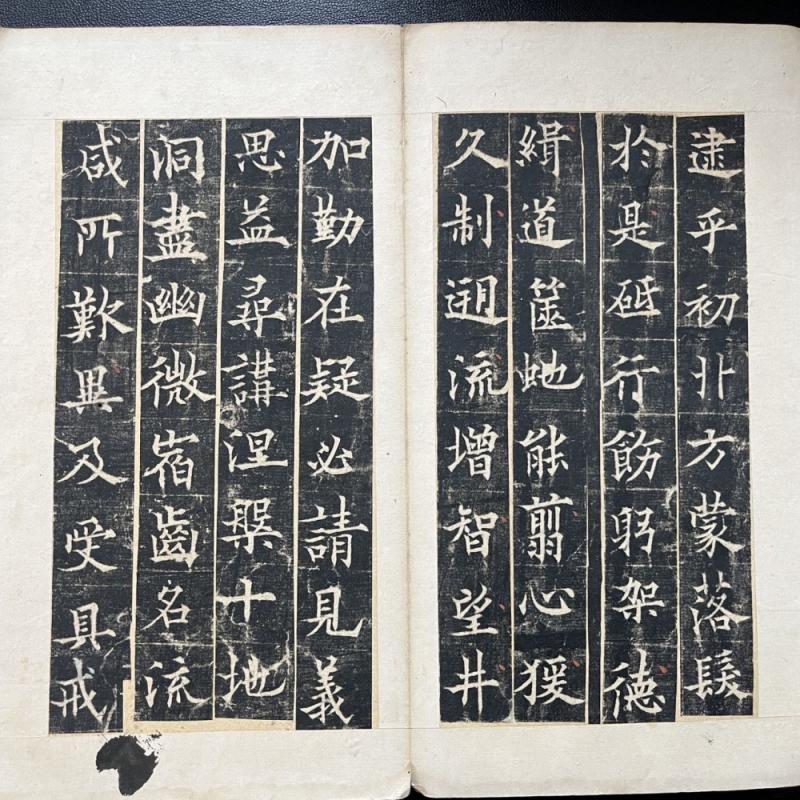 逮乎初北方蒙落髮
於是砥行飭躬架德
緝道篋虵能翦心猨
久制遡流增智望井
加勤在疑必請見義
思益尋講涅槃十地
洞盡幽微宿齒名流
咸所歎異及受具戒